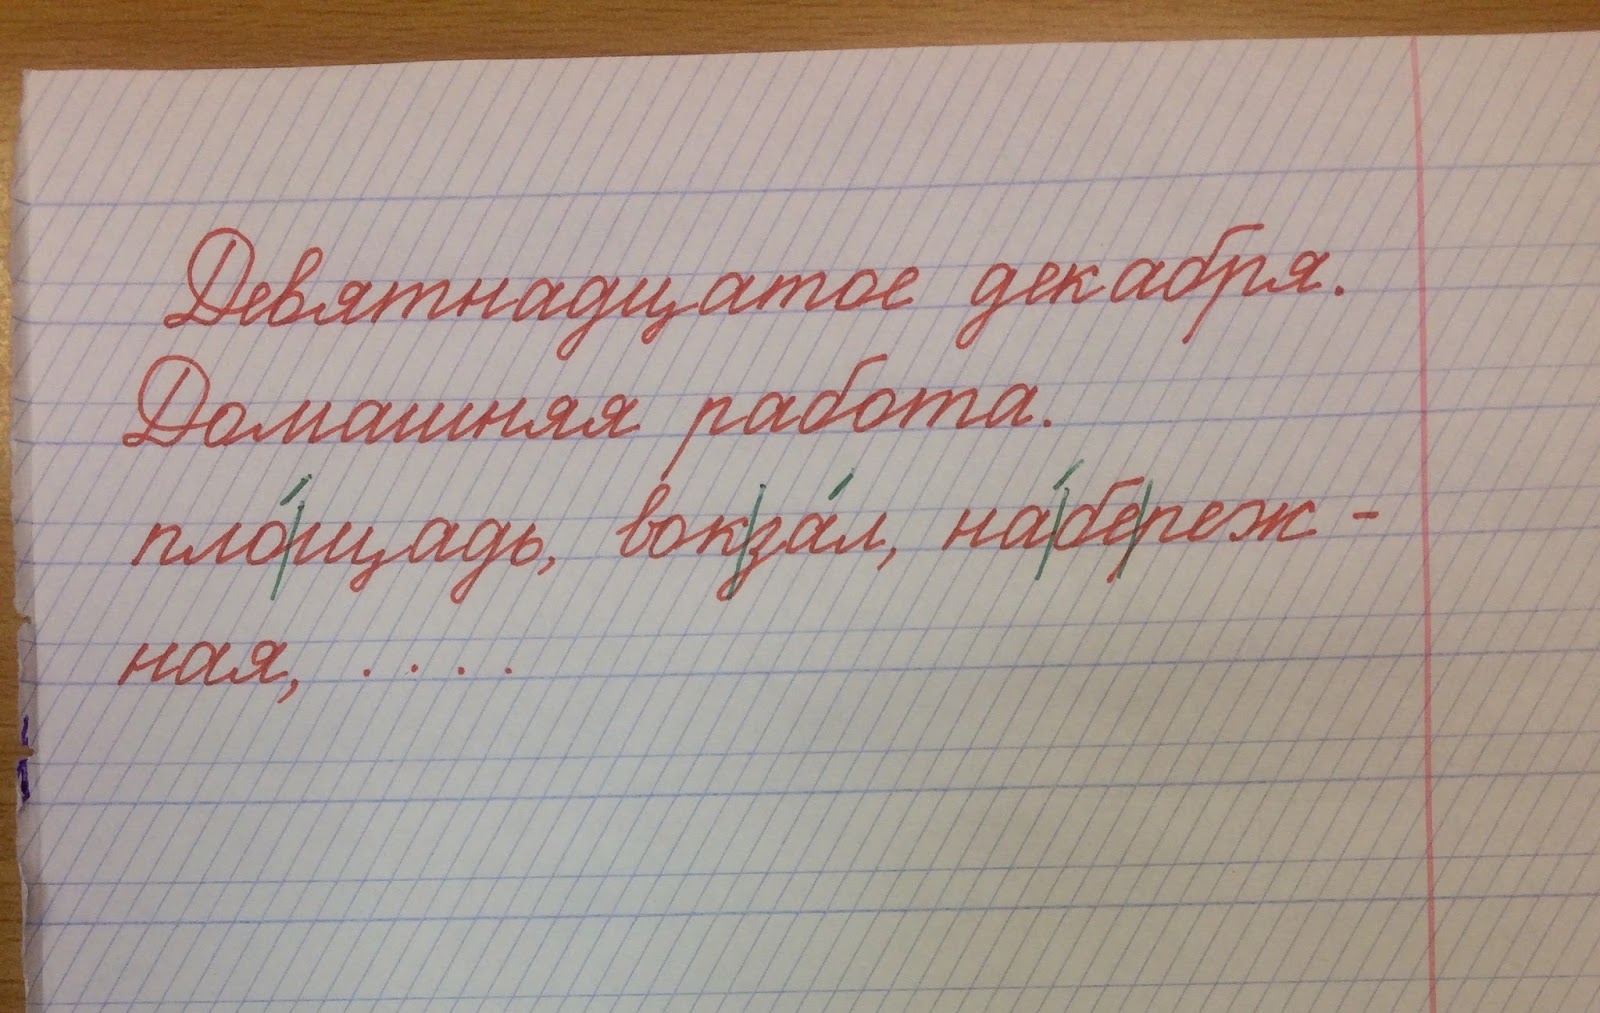 Девятнадцатое декабря.
Домашняя работа.
пло́|щадь, вок|за́л, на́|бе|реж-
ная, ....